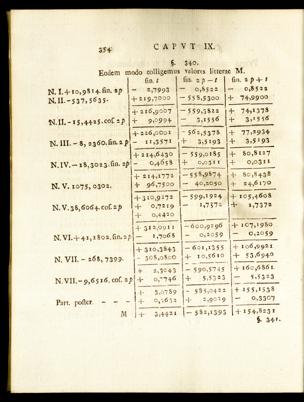 354 CAPVT IX.
§. 340.
Eodem modo colligemus valores litterae M.
sin. t | sin. 2 p − t | sin. 2 p + t
N. I. + 10,9814. sin. 2p | − 2,7993 | − 0,8522 | − 0,8522
N. II. − 537,5635. | + 219,7000 | − 558,5300 | + 74,9900
+ 216,9007 | − 559,3822 | + 74,1378
N. II. − 15,4425. cos. 2p | + 9,0994 | − 3,1556 | + 3,1556
+ 226,0001 | − 562,5378 | + 77,2934
N. III. − 8,3160. sin. 2p | − 11,3571 | + 3,5193 | + 3,5193
+ 214,6430 | − 559,0185 | + 80,8127
N. IV. − 18,3023. sin. 2p | − 0,4658 | + 0,0311 | + 0,0311
+ 214,1772 | − 558,9874 | + 80,8438
N. V. 1075,0302. | + 96,7500 | − 40,2050 | + 24,6170
+ 310,9272 | − 599,1924 | + 105,4608
N. V. 38,6064. cos. 2p | + 0,7219 | − 1,7372 | + 1,7372
+ 0,4420
+ 312,0911 | − 600,9296 | + 107,1980
N. VI. + 41,1802. sin. 2p | − 1,7068 | − 0,2059 | − 0,2059
+ 310,3843 | − 601,1355 | + 106,9921
N. VII. − 268,7399. | − 308,0800 | + 10,5610 | + 53,6940
+ 2,3043 | − 590,5745 | + 160,6861
N. VII. − 9,6516. cos. 2p | + 0,7746 | + 5,5323 | − 5,5323
+ 3,0789 | − 585,0422 | + 155,1538
Part. poster. − − − | + 0,3632 | + 2,9029 | − 0,3307
M | + 3,4421 | − 582,1393 | + 154,8231
§. 341.